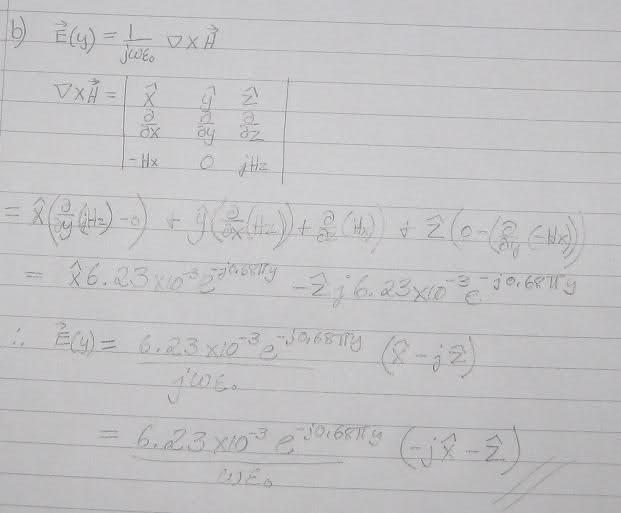 b) E⃗(y) = 1/jωε₀ ∇×H⃗
∇×H⃗ = | x̂ ŷ ẑ |
∂/∂x ∂/∂y ∂/∂z
-Hx 0 jHz
= x̂(∂/∂y(jHz) - 0) + ŷ(∂/∂x(Hz)) + ∂/∂z(Hx)) + ẑ(0 - (∂/∂y(-Hx))
= x̂ 6.23×10⁻³ e^(-j0.68πy) - ẑ j 6.23×10⁻³ e^(-j0.68πy)
∴ E⃗(y) = 6.23×10⁻³ e^(-j0.68πy) / jωε₀ (x̂ - jẑ)
= 6.23×10⁻³ e^(-j0.68πy) / ωε₀ (-jx̂ - ẑ)